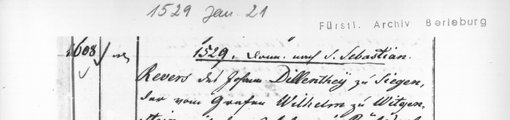 1529 Jan 21
Fürstl. Archiv Berleburg
1608
1529. Donn. nach S. Sebastian.
Revers des Johann Dillenthey zu Siegen,
der vom Grafen Wilhelm zu Witgen-